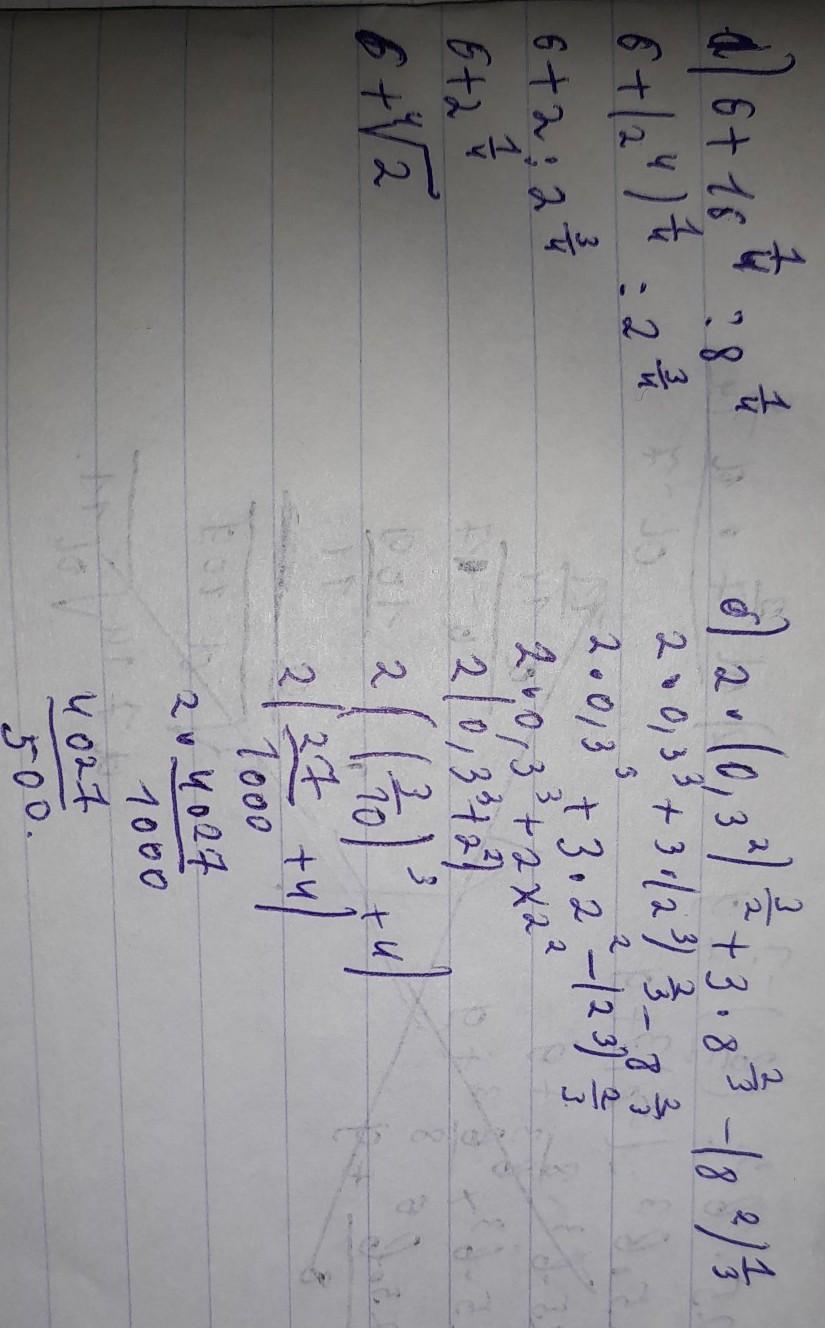 а) 6 + 16^(1/4) : 8^(1/4)
6 + (2^4)^(1/4) : 2^(3/4)
6 + 2 : 2^(3/4)
6 + 2^(1/4)
6 + ∜2
б) 2 · (0,3^2)^(3/2) + 3 · 8^(2/3) - (8^2)^(1/3)
2 · 0,3^3 + 3 · (2^3)^(2/3) - 8^(2/3)
2 · 0,3^3 + 3 · 2^2 - (2^3)^(2/3)
2 · 0,3^3 + 2 × 2^2
2 (0,3^3 + 2^2)
2 ((3/10)^3 + 4)
2 (27/1000 + 4)
2 · 4027/1000
4027/500.